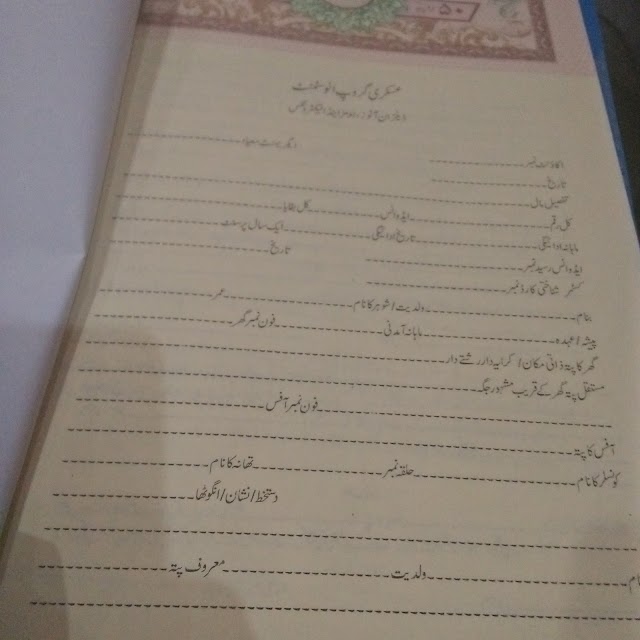 ۵۰
عسکری گروپ انوسٹمنٹ
ڈیلرز ان آٹوز، رومز اینڈ الیکٹرونکس
اکاؤنٹ نمبر
تاریخ
تفصیل مال
کل رقم ایڈوانس کل بقایا
ماہانہ ادائیگی تاریخ ادائیگی ایک سال پرسنٹ
ایڈوانس رسید نمبر تاریخ
کسٹمر شناختی کارڈ نمبر
بنام ولدیت / شوہر کا نام عمر
پیشہ / عہدہ ماہانہ آمدنی فون نمبر گھر
گھر کا پتہ ذاتی مکان / کرایہ دار رشتے دار
مستقل پتہ گھر کے قریب مشہور جگہ
فون نمبر آفس
آفس کا پتہ
کونسلر کا نام حلقہ نمبر تھانہ کا نام
دستخط / نشان / انگوٹھا
نام ولدیت معروف پتہ